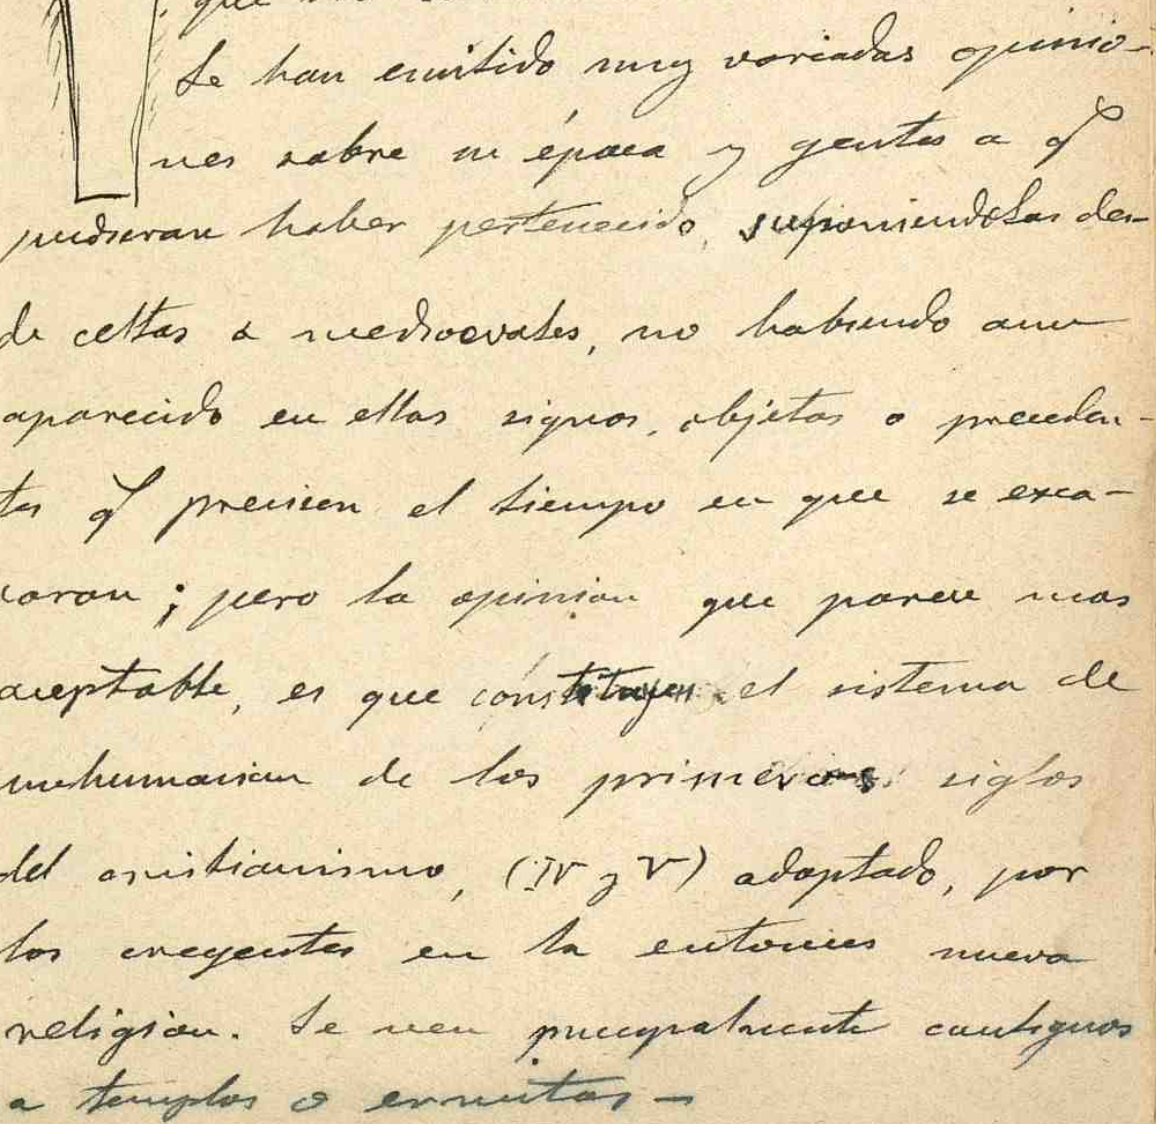 que
Se han emitido muy variadas opinio-
nes sobre su época y gentes a q
pudieran haber pertenecido, suponiendolas des-
de celtas a medioevales, no habiendo aun
aparecido en ellas signos, objetos o preceden-
tes q precisen el tiempo en que se exca-
varon; pero la opinion que parece mas
aceptable, es que constituyen el sistema de
inhumacion de los primeros siglos
del cristianismo, (IV y V) adoptado, por
los creyentes en la entonces nueva
religion. Se ven principalmente contiguos
a templos o ermitas -